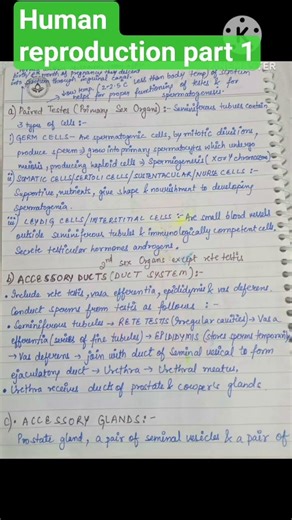 Human
reproduction part 1
birth/8th month of pregnancy they descent
into scrotum through inguinal canal
Low temp (2-2.5°C less than body temp) of scrotum
helps for proper functioning of testes & for
spermatogenesis.
a) Paired Testes (Primary Sex Organs) :- Seminiferous tubules contain
3 types of cells :-
i) GERM CELLS - Are spermatogenic cells, by mitotic divisions,
produce sperm → grows into primary spermatocytes which undergo
meiosis, producing haploid cells → Spermiogenesis (X or Y chromosome)
ii) SOMATIC CELLS/SERTOLI CELLS/SUSTENTACULAR/NURSE CELLS :-
Supportive, nutrients, give shape & nourishment to developing
spermatogonia.
iii) LEYDIG CELLS/INTERSTITIAL CELLS :- Are small blood vessels
outside seminiferous tubules & immunologically competent cells,
Secrete testicular hormones androgens.
2nd sex Organs except rete testis
b) ACCESSORY DUCTS (DUCT SYSTEM) :-
• Include rete testis, vasa efferentia, epididymis & vas deferens.
Conduct sperms from testis as follows :-
• Seminiferous tubules → RETE TESTIS (irregular cavities) → Vasa
efferentia (series of fine tubules) → EPIDIDYMIS (stores sperms temporarily)
→ Vas deferens → join with duct of seminal vesical to form
ejaculatory duct → Urethra → Urethral meatus.
• Urethra receives ducts of prostate & cowper's glands
c) • ACCESSORY GLANDS :-
Prostate gland, a pair of seminal vesicles & a pair of